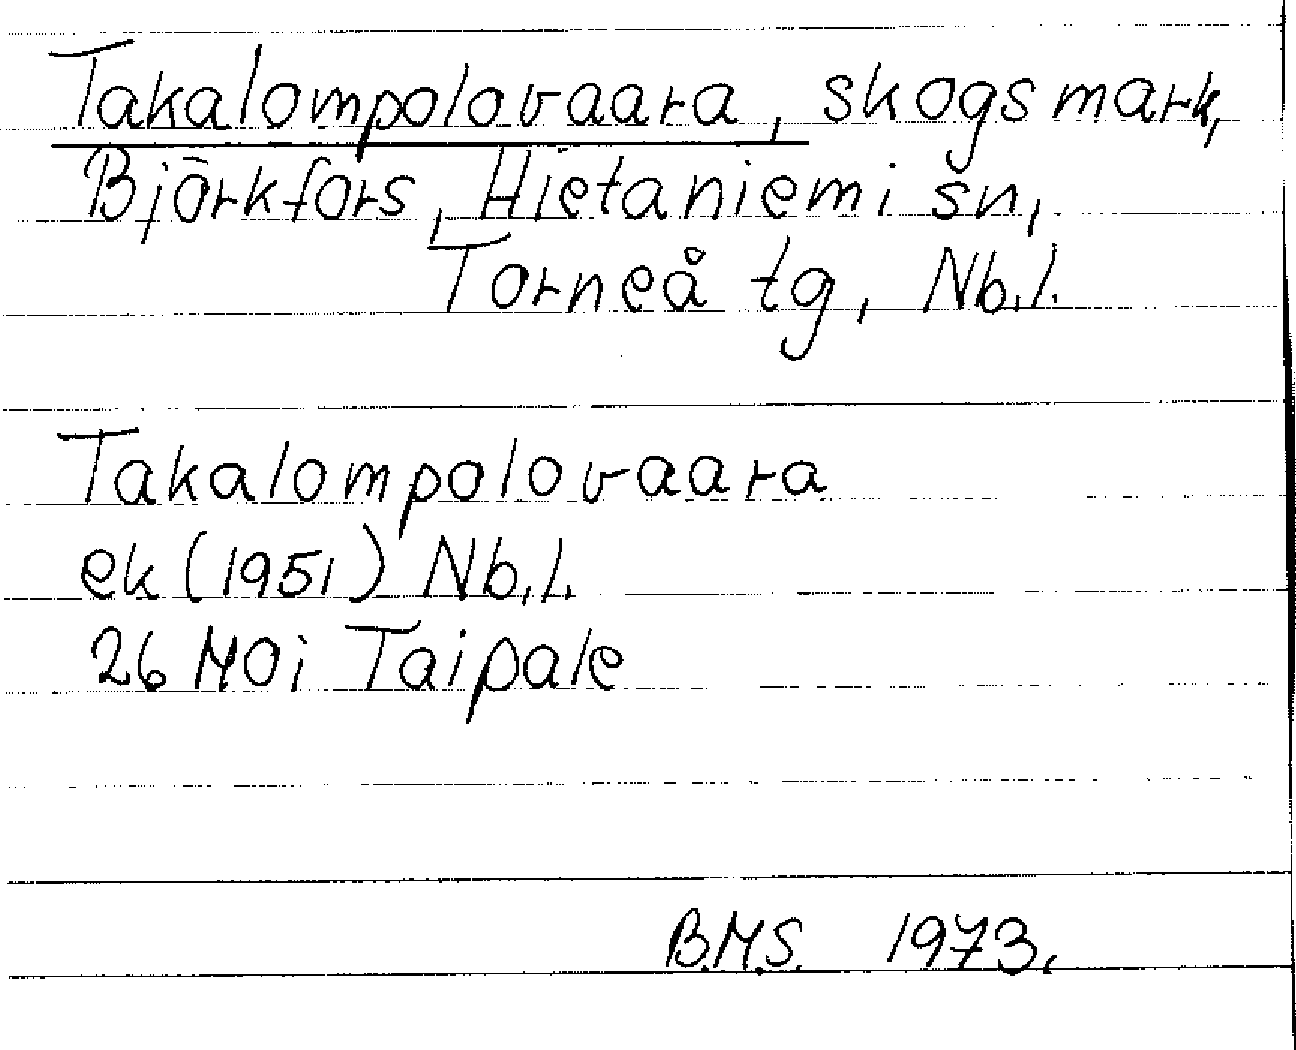 Takalompolovaara, skogsmark,
Björkfors, Hietaniemi sn,
Torneå tg, Nb.l.
Takalompolovaara
ek (1951) Nb.l.
26 MOi Taipale
B.M.S. 1973.